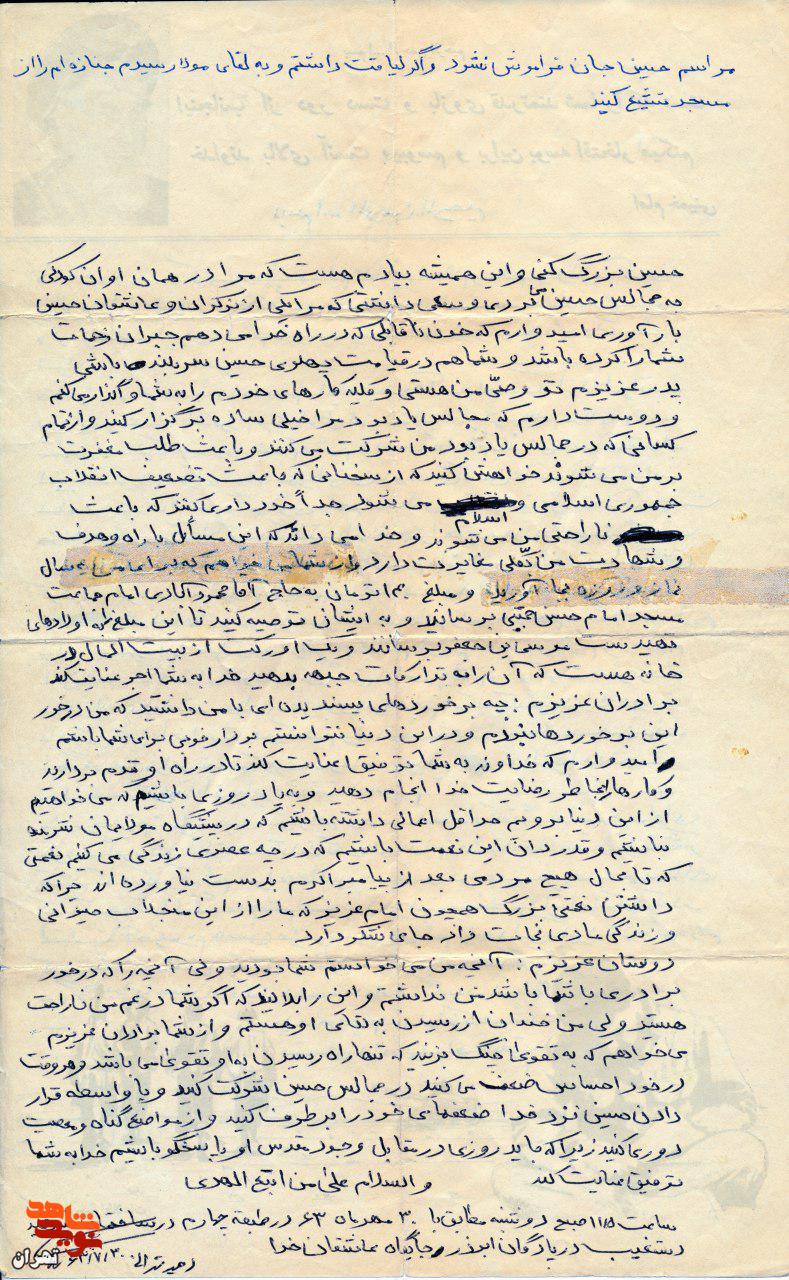 مراسم حسین جان فراموش نشود و اگر لیاقت داشتم و به لقای مولا رسیدم جنازه ام را از
مسجد تشیع کنید
حسین بزرگ کنی و این همیشه بیادم هست که مرا در همان اوان کودکی
به مجالس حسین می بردی و سعی داشتی که مرا یکی از نوکران و عاشقان حسین
بار آوری امیدوارم که خون ناقابلی که در راه خدا می دهم جبران زحمات
شما را کرده باشد و شما هم در قیامت پهلوی حسین سربلند باشی
پدر عزیزم تو وصّی من هستی و کلیه کارهای خودم را به شما واگذار می کنم
و دوست دارم که مجالس یادبود مرا خیلی ساده برگزار کنید و از تمام
کسانی که در مجالس یادبود من شرکت می کنند و باعث طلب مغفرت
بر من می شوند خواهش کنید که از سخنانی که باعث تضعیف انقلاب
جمهوری اسلامی و اسلام می شود جداً خودداری کنند که باعث
ناراحتی من می شوند و خدا می داند که این مسائل با راه و هدف
و شهادت من کّلی مغایرت دارد
نماز و روزه بجا آورید و مبلغ تومان به حاج آقا محمود اکبری امام جماعت
مسجد امام حسن مجتبی برسانید و به ایشان توصیه کنید تا این مبلغ را به اولادهای
تهیدست موسی ابن جعفر برسانند و یک اورکت از بیت المال در
خانه هست که آن را به تدارکات جبهه بدهید خدا به شما اجر عنایت کند
برادران عزیزم: چه برخوردهای پسندیده ای با من داشتید که من در خور
این برخوردها نبودم و در این دنیا نتوانستم برادر خوبی برای شما باشم
و امیدوارم که خداوند به شما توفیق عنایت کند تا در راه او قدم بردارید
و کارها را بخاطر رضایت خدا انجام دهید و به یاد روزی باشیم که می خواهیم
از این دنیا برویم حداقل اعمالی داشته باشیم که در پیشگاه مولایمان شرمنده
نباشیم و قدردان این نعمت باشیم که در چه عصری زندگی می کنیم نعمتی
که تا بحال هیچ مردمی بعد از پیامبر اکرم بدست نیاورده اند چرا که
داشتن نعمتی بزرگ همچون امام عزیز که ما را از این منجلاب حیوانی
و زندگی مادی نجات داد جای شکر دارد
دوستان عزیزم: آنچه من می خواستم شما بودید ولی آنچه را که در خور
برادری با شما باشد من نداشتم و این را بدانید که اگر شما در غم من ناراحت
هستید ولی من خندان از رسیدن به لقای او هستم و از شما برادران عزیزم
می خواهم که به تقوی چنگ بزنید که تنها راه رسیدن به او تقوی می باشد و هر وقت
در خود احساس ضعف می کنید در مجالس حسین شرکت کنید و با واسطه قرار
دادن حسین نزد خدا ضعفهای خود را برطرف کنید و از مواضع گناه و معصیت
دوری کنید زیرا که باید روزی در مقابل وجود مقدس او پاسخگو باشیم خدا به شما
توفیق عنایت کند والسلام علی من اتبع الهدی
ساعت صبح دوشنبه مطابق با ۳۰ مهر ماه ۶۳ در طبقه چهارم در ساختمان
دستغیب در پادگان ابوذر جایگاه عاشقان خدا
۶۳/۷/۳۰
نوید شاهد
تهران